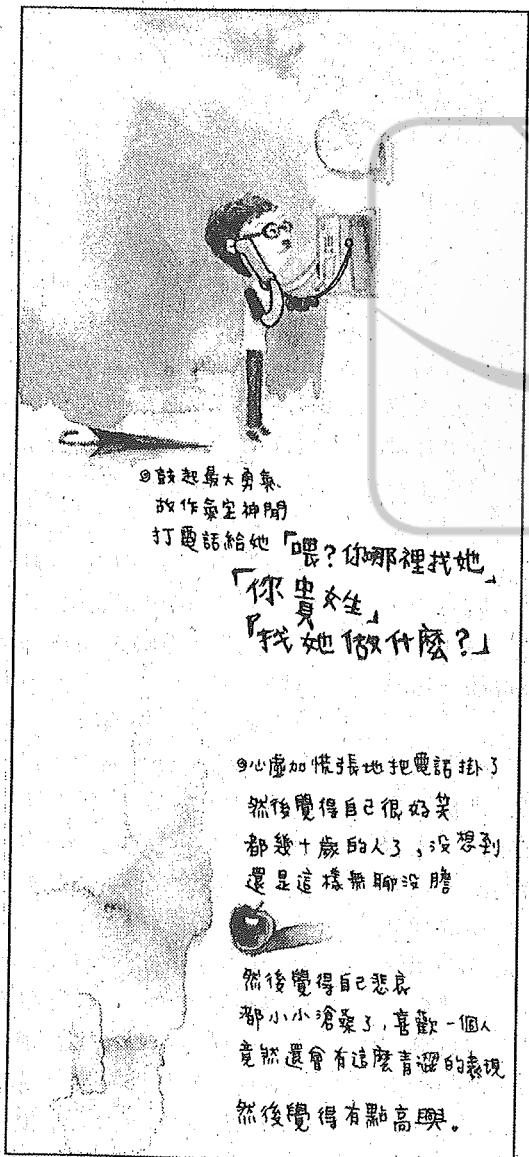 鼓起最大勇氣
故作氣定神閒
打電話給她「喂?你哪裡找她」
「你貴姓」
「找她做什麼?」
心虛加慌張地把電話掛了
然後覺得自己很好笑
都幾十歲的人了,沒想到
還是這樣無聊沒膽
然後覺得自己悲哀
都小小滄桑了,喜歡一個人
竟然還會有這麼青澀的表現
然後覺得有點高興。